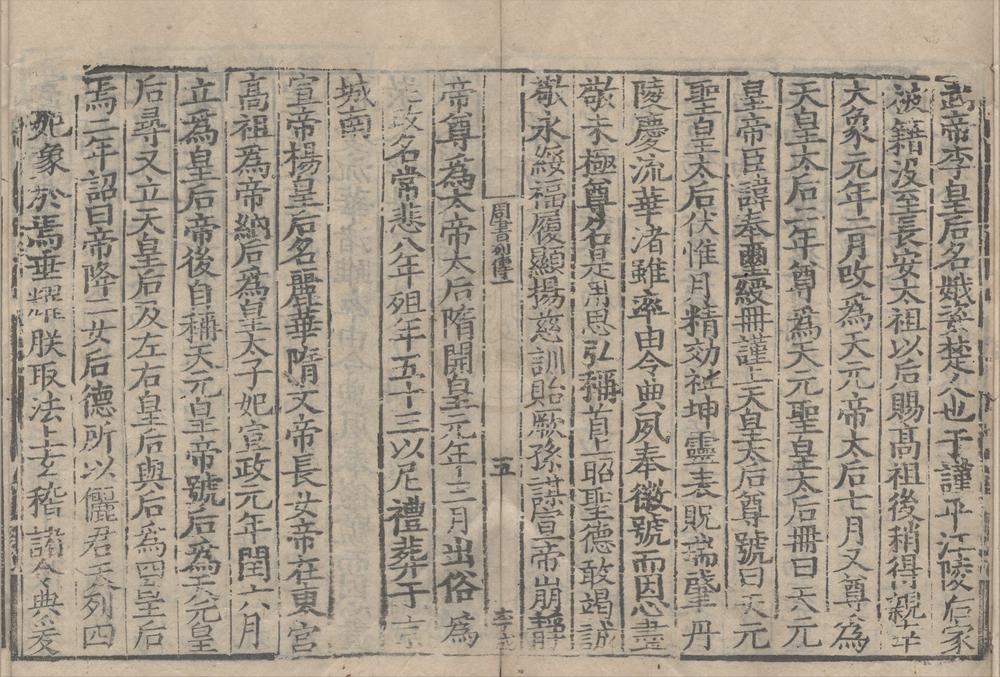 武帝李皇后名娥姿楚人也于謹平江陵后家
被籍沒至長安太祖以后賜髙祖後稍得親幸
大象元年二月改為天元帝太后七月又尊為
天皇太后二年尊為天元聖皇太后冊曰天元
皇帝臣諱奉璽綬冊謹上天皇太后尊號曰天元
聖皇太后伏惟月精効祉坤靈表貺瑞肇丹
陵慶流華渚雖率由令典夙奉徽號而因心盡
敬未極尊名是用思弘稱首上昭聖德敢竭誠
敬永綏福履顯揚慈訓貽厥孫謀宣帝崩静
周書列傳一
五
李
帝尊為太帝太后隋開皇元年三月出俗為
尼改名常悲八年殂年五十三以尼禮葬于京
城南
宣帝楊皇后名麗華隋文帝長女帝在東宮
髙祖為帝納后為皇太子妃宣政元年閏六月
立為皇后帝後自稱天元皇帝號后為天元皇
后尋又立天皇后及左右皇后與后為四皇后
焉二年詔曰帝降二女后德所以儷君天列四
妃象於焉垂耀朕取法上玄稽諸令典爰